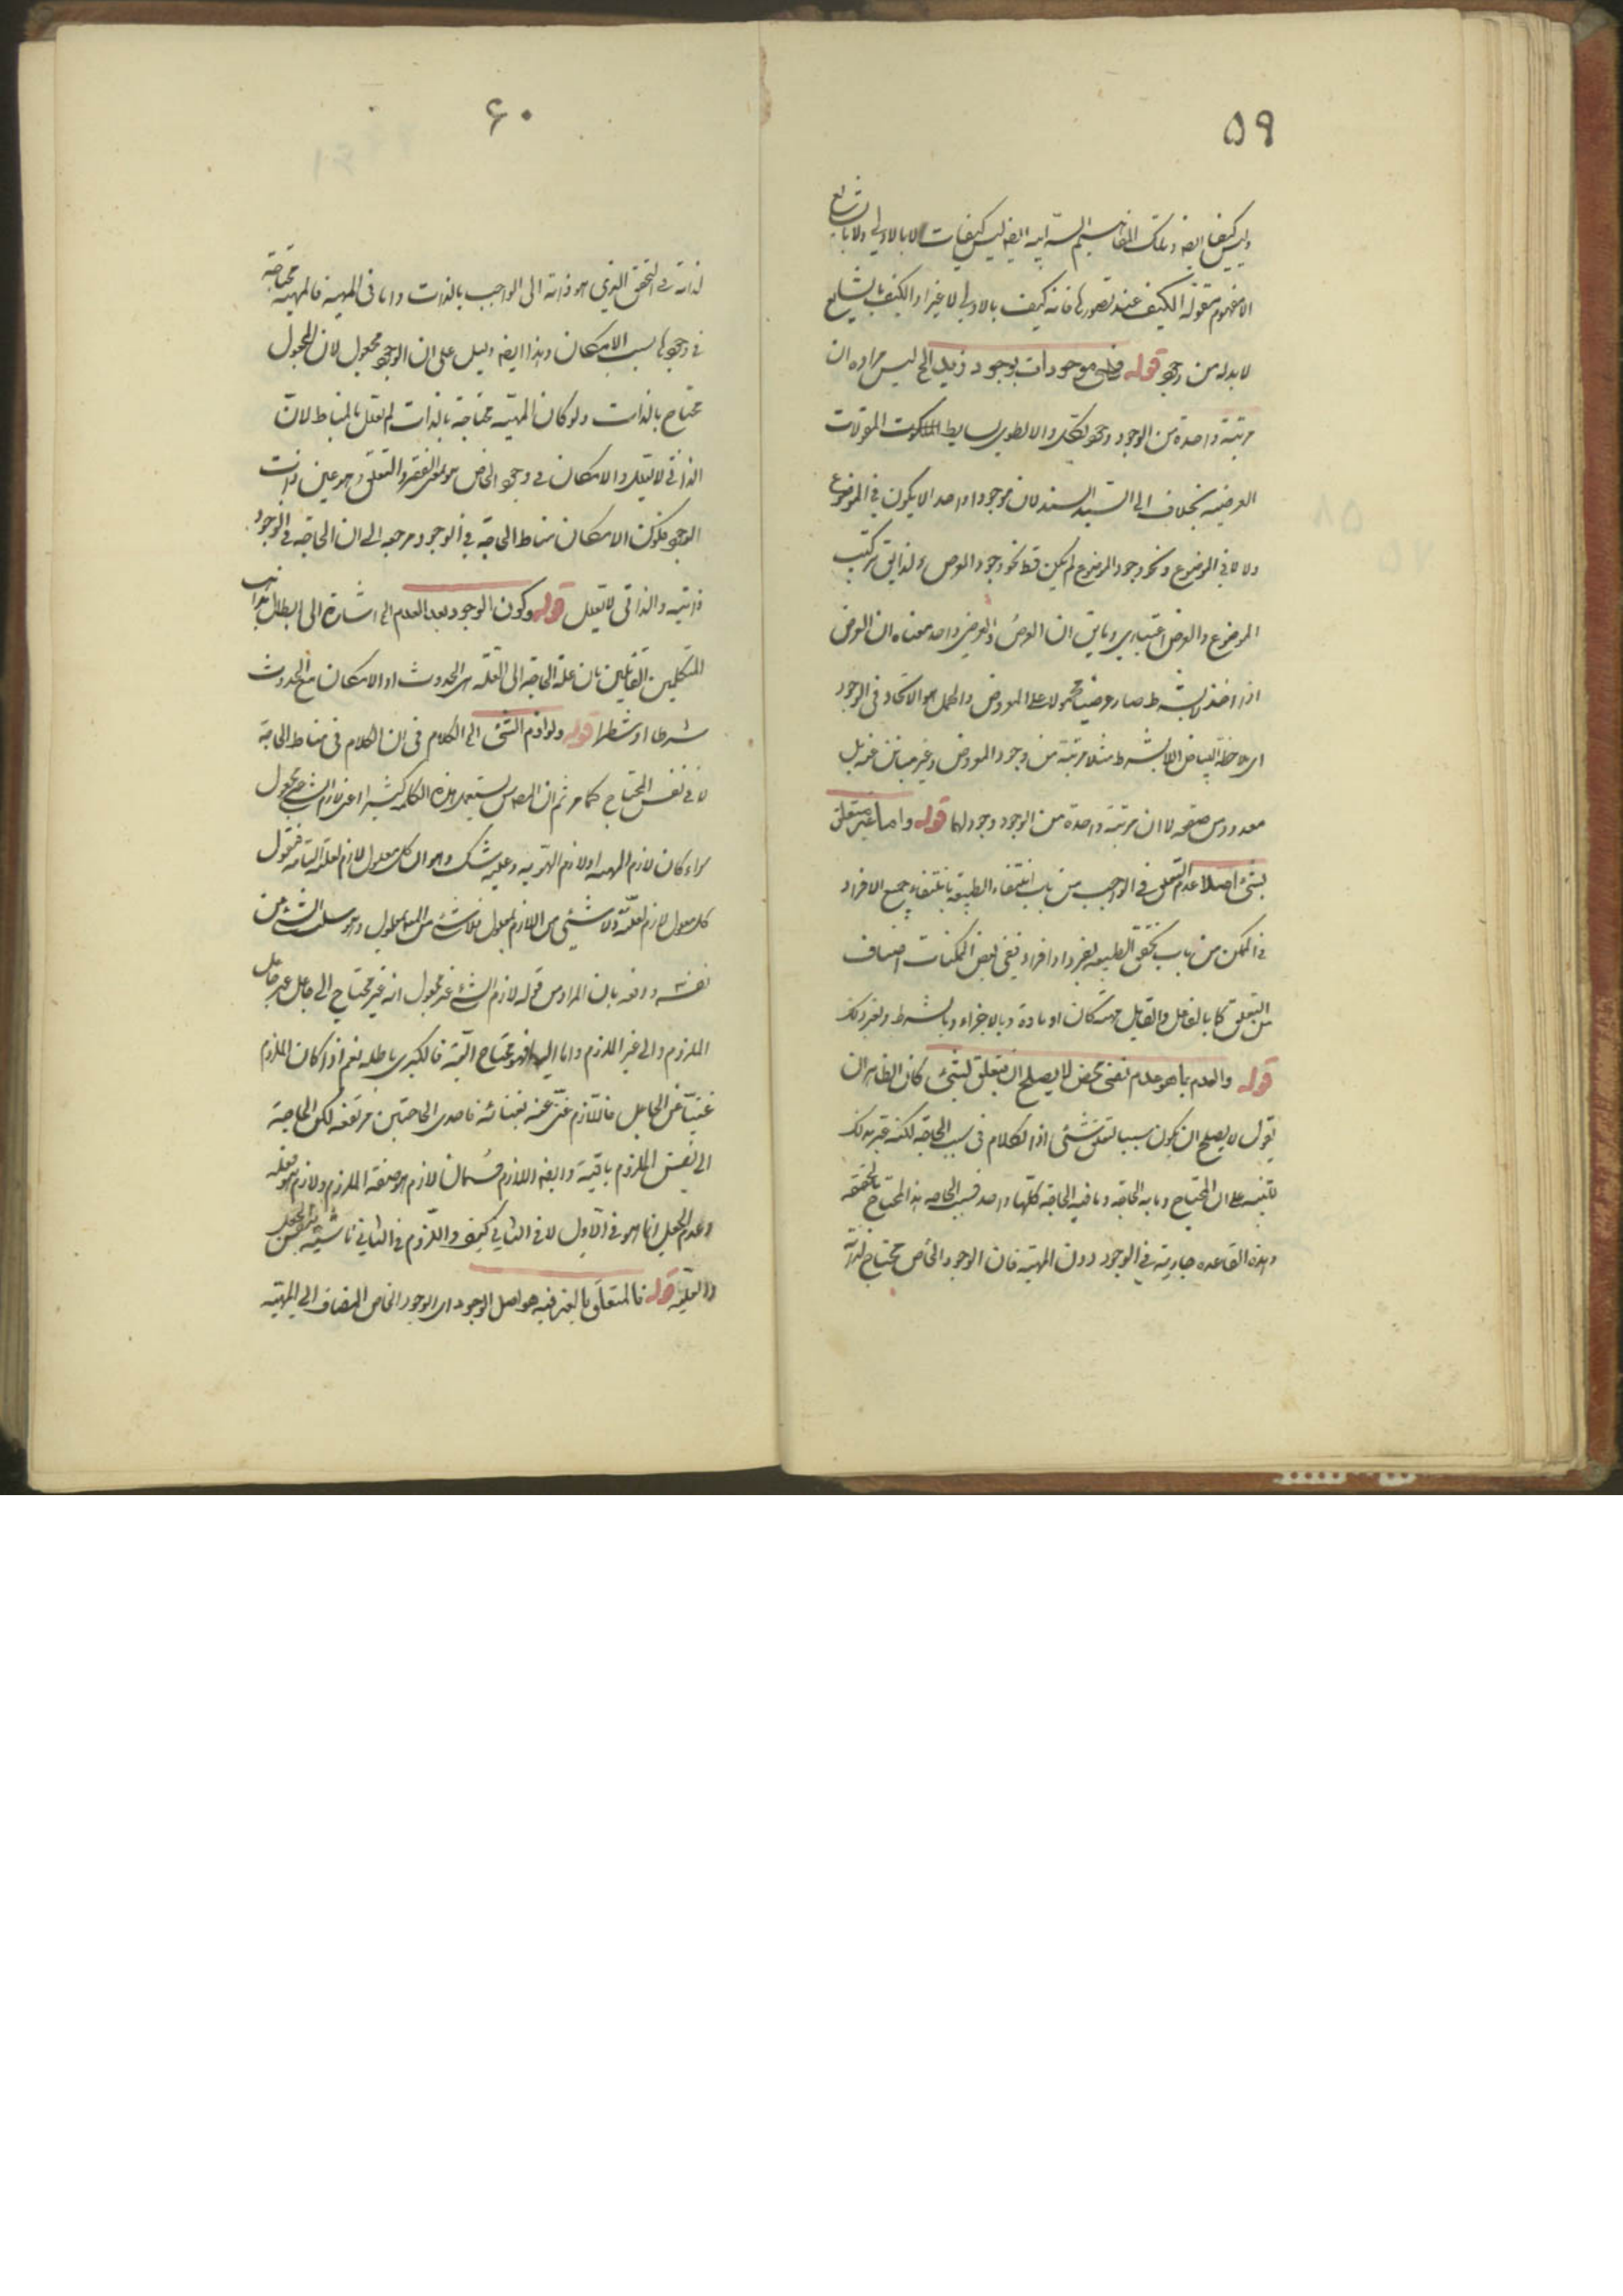 ٥٩
وليس كيفا ايضا وتلك المفاهيم الذاتية ايضا ليس كيفيات الا بالاولى ولا بالشايع
الا مفهوم مقولة الكيف عند تصورها فانه كيف بالاولى لا غير اذ الكيف بالشايع
لابد له من وجود قوله فهى موجودات بوجود زيد الخ ليس مراده ان
مرتبة واحدة من الوجود وجود لكل والا لطوى بسايط المقولات
العرضية بخلاف السيد السند لان موجودا واحدا لا يكون فى الموضوع
ولا لا فى الموضوع ونحو وجود الموضوع لم يكن قط نحو وجود العرض ولذا يق تركيب
الموضوع والعرض اعتبارى وما يق ان العرض والعرضى واحد معناه ان العرض
اذا اخذ لا بشرط صار عرضيا محمولا على المعروض والحمل هو الاتحاد فى الوجود
اى ملاحظة البياض اللابشرط مثلا مرتبة من وجود المعروض وغير مباين عنه بل
معدود من صقعه لا ان مرتبة واحدة من الوجود وجود لهما قوله واما غير متعلق
بشئ اصلا عدم التعلق فى الواجب من باب انتفاء الطبيعة بانتفاء جميع الافراد
وفى الممكن من باب تحقق الطبيعة بفرد او افراد ففى بعض الممكنات اصناف
من التعلق كما بالفاعل والقابل مهية كان او مادة وبالاجزاء وبالشرط ولغير ذلك
قوله والعدم بما هو عدم نفى محض لا يصلح ان يتعلق بشئ كان الظاهر ان
يقول لا يصلح ان يكون سببا لتعلق شئ اذ الكلام فى سبب الحاجة لكنه عبر بذلك
للتنبيه على ان المحتاج وما به الحاجة وما فيه الحاجة كلها واحد فسبب الحاجة هذا المحتاج بالحقيقة
وهذه القاعدة جارية فى الوجود دون المهية فان الوجود الخاص محتاج لذاته
۶۰
لذاته فى التحقق الذى هو ذاته الى الواجب بالذات واما فى المهية فالمهية محتاجة
فى وجودها بسبب الامكان وهذا ايضا دليل على ان الوجود مجعول لان المجعول
محتاج بالذات ولو كان المهية محتاجة بالذات لم تعلل بالمناط لان
الذاتى لا يعلل والامكان فى وجود الخاص هو بمعنى الفقر والتعلق وهو عين ذات
الوجود فكون الامكان مناط الحاجة فى الوجود مرجعه الى ان الحاجة فى الوجود
ذاتية والذاتى لا يعلل قوله وكون الوجود بعد العدم الخ اشارة الى ابطال مذاهب
المتكلمين القائلين بان علة الحاجة الى العلة هى الحدوث او الامكان مع الحدوث
شرطا او شطرا قوله ولوازم الشئ الخ الكلام فى ان الكلام فى مناط الحاجة
لا فى نفس المحتاج كما مر ثم ان المصنف يستعمل هذه الكلمة كثيرا اعنى لازم الشئ غير مجعول
سواء كان لازم المهية او لازم الهوية وعليه شك وهو ان كل معلول لازم لعلته التامة فنقول
كل معلول لازم لعلته ولا شئ من اللازم بمعلول فلا شئ من المعلول بمعلول وهو سلب الشئ عن
نفسه ودفعه بان المراد من قوله لازم الشئ غير مجعول انه غير محتاج الى جاعل غير جاعل
الملزوم والى غير الملزوم واما اليه فهو محتاج البتة فالكبرى باطلة نعم اذا كان الملزوم
غنيا عن الجاعل فاللازم غنى عنه بغنائه فاحدى الحاجتين مرتفعة لكن الحاجة
الى نفس الملزوم باقية وايضا اللازم قسمان لازم هو صفة الملزوم ولازم هو فعله
وعدم الجعل انما هو فى الاول لا فى الثانى كيف واللزوم فى الثانى ناشية من الجعل
والعلية قوله فالمتعلق بالغير فيه هو اصل الوجود اى الوجود الخاص المضاف الى المهية